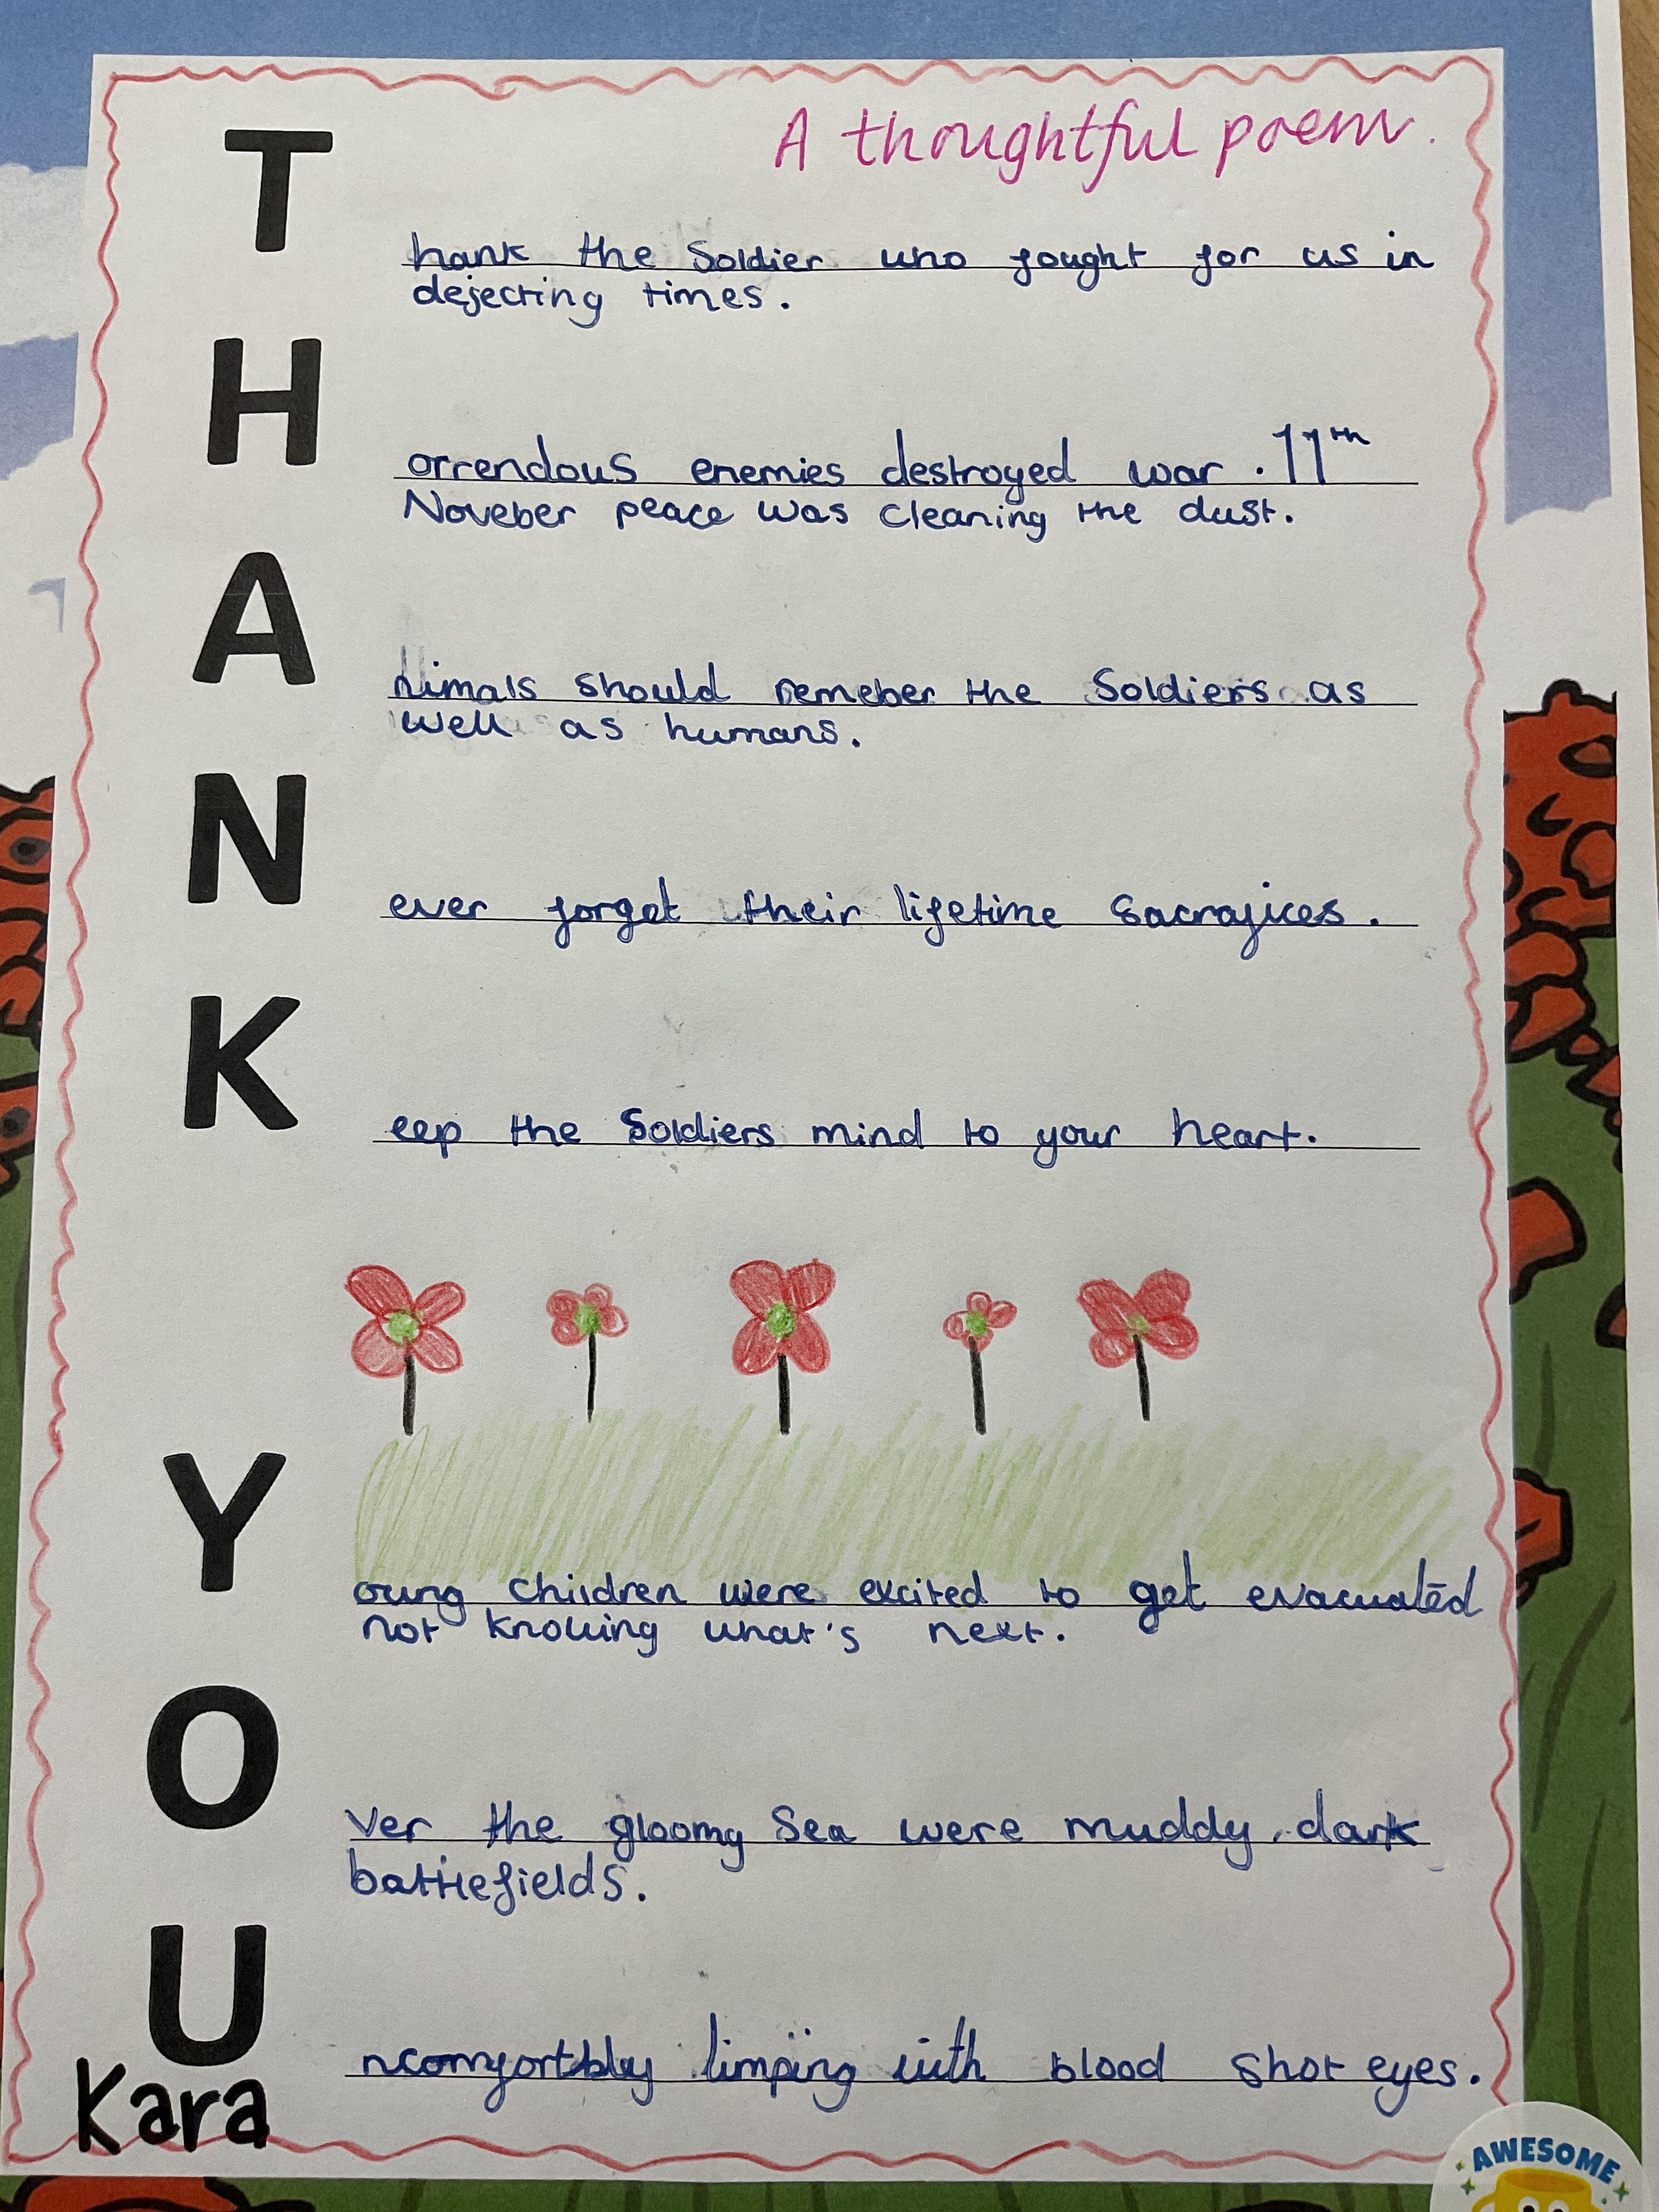 A thoughtful poem.
Thank the Soldier who fought for us in
dejecting times.
Horrendous enemies destroyed war. 11th
Noveber peace was cleaning the dust.
Animals should remeber the Soldiers as
well as humans.
Never forget their lifetime Sacrafices.
Keep the Soldiers mind to your heart.
Young children were excited to get evacuated
not knowing what's next.
Over the gloomy Sea were muddy, dark
battlefields.
Uncomfortbley limping with blood shot eyes.
Kara
AWESOME